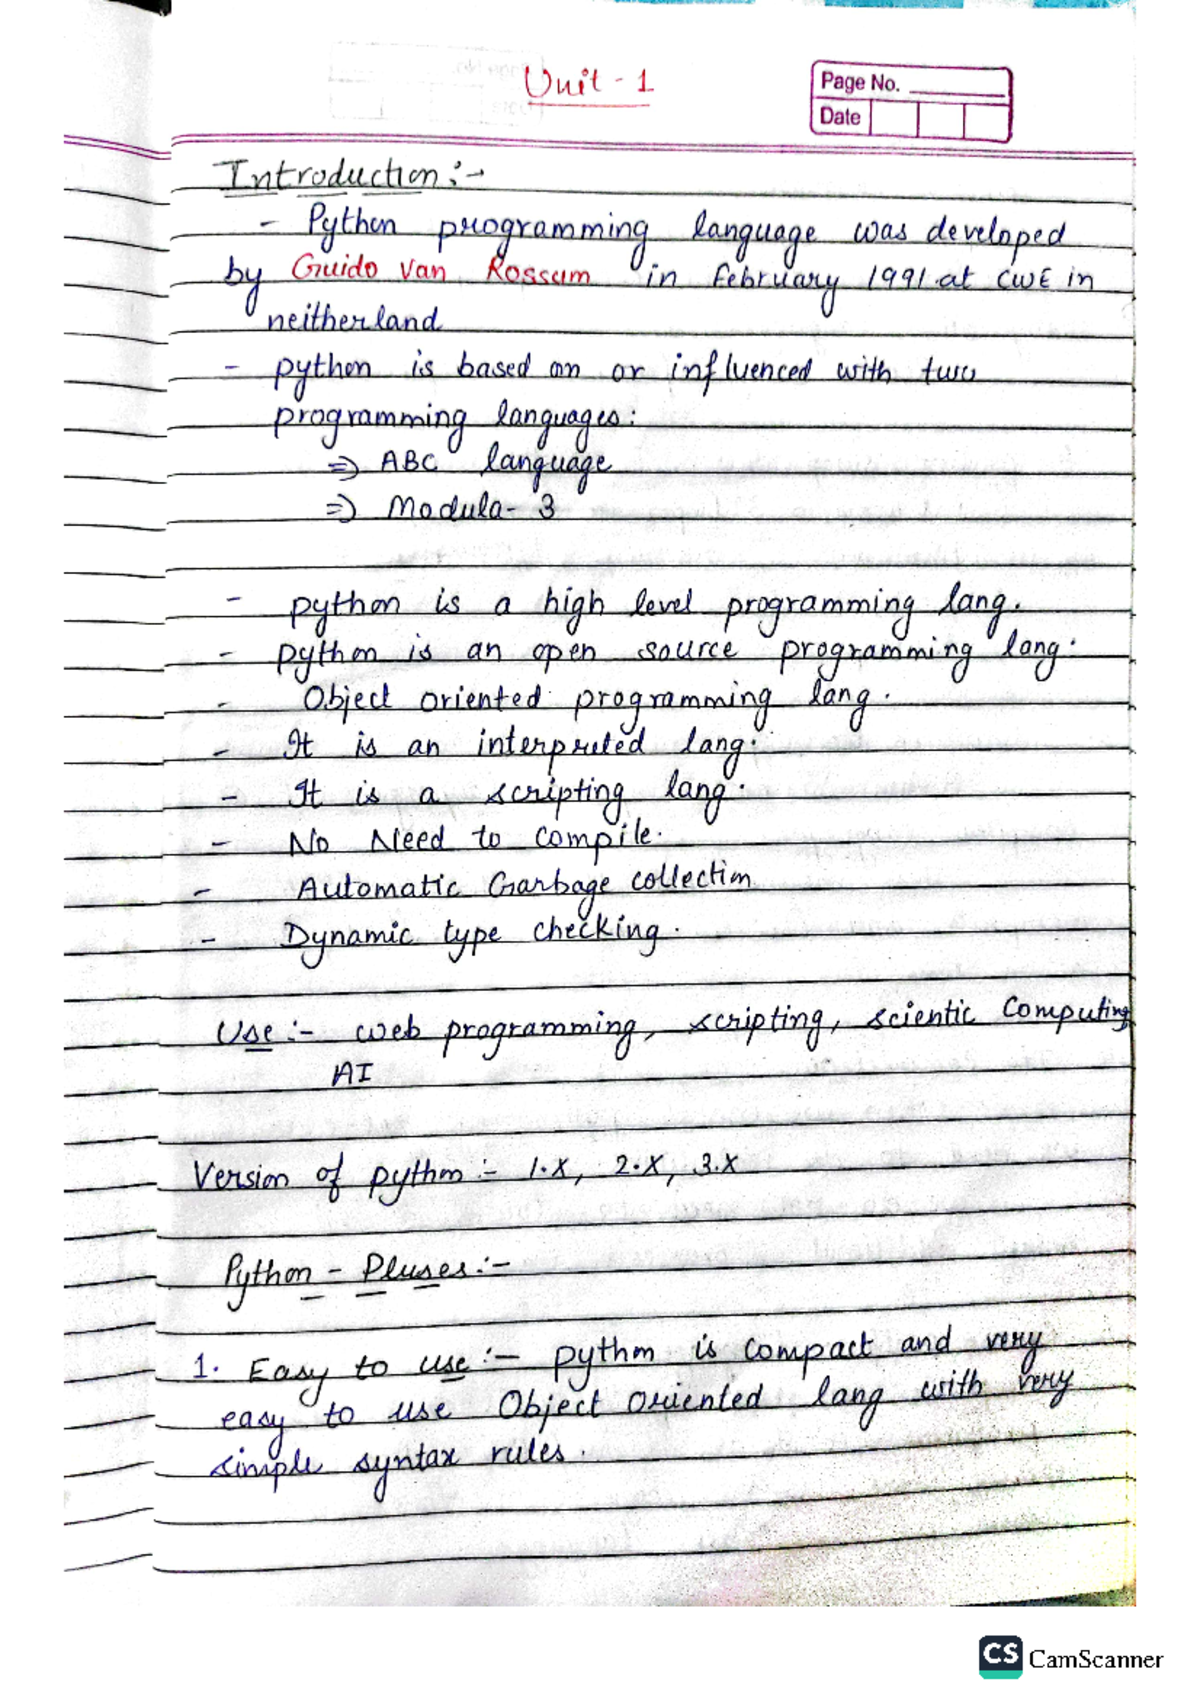 Unit - 1
Page No.
Date
Introduction :-
- Python programming language was developed
by Guido van Rossum in February 1991 at CWE in
neitherland
- python is based on or influenced with two
programming languages:
⇒ ABC language
⇒ Modula- 3
- python is a high level programming lang.
- python is an open source programming lang.
- Object oriented programming lang.
- It is an interpreted lang.
- It is a scripting lang.
- No Need to compile.
- Automatic Garbage collection
- Dynamic type checking.
Use :- web programming, scripting, scientic Computing
AI
Version of python :- 1.X, 2.X, 3.X
Python - Pluses :-
1. Easy to use :- python is compact and very
easy to use Object Oriented lang with very
simple syntax rules.
CS CamScanner